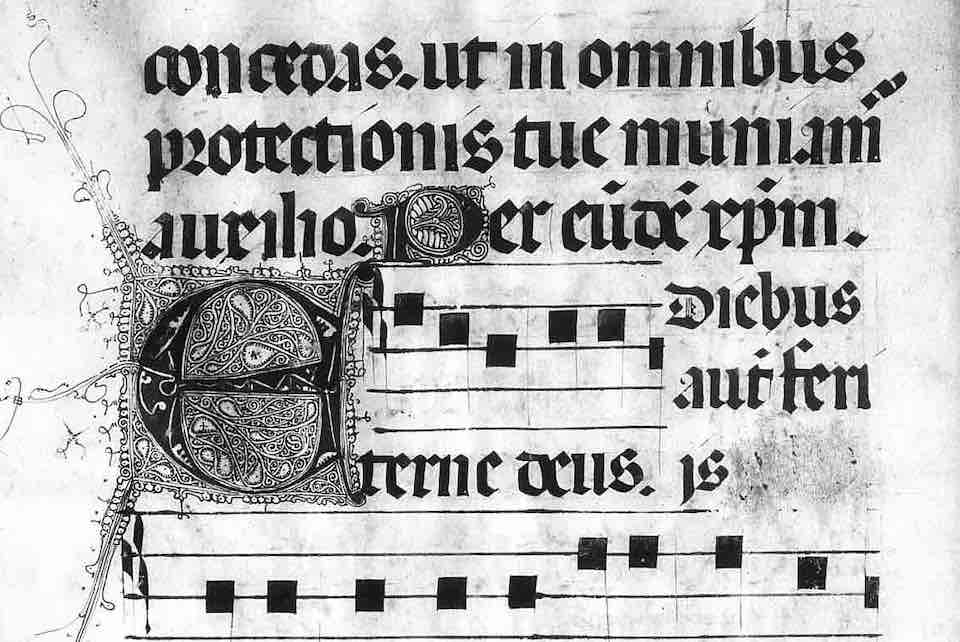 concedas. ut in omnibus
protectionis tue muniam̄
auxilio. Per eūdē xp̄m.
Diebus
aut feri
Eterne deus. js